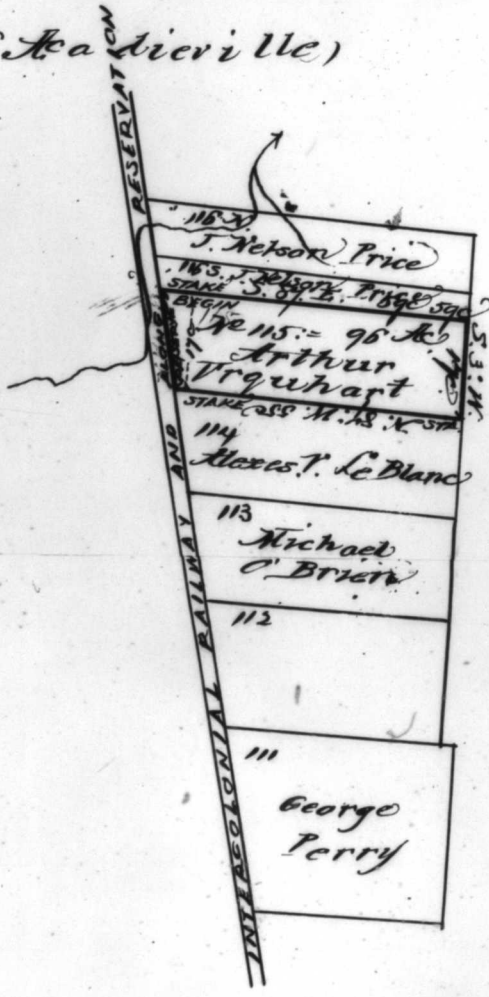 Acadieville)
INTERCOLONIAL RAILWAY AND RESERVATION
116 N
J. Nelson Price
116 S. J. Nelson Price
STAKE S. 87. E.
BEGIN
ALONG
No 115 = 96 Ac
Arthur
Urquhart
STAKE
114
Alexes. V. LeBlanc
113
Michael
O'Brien
112
111
George
Perry